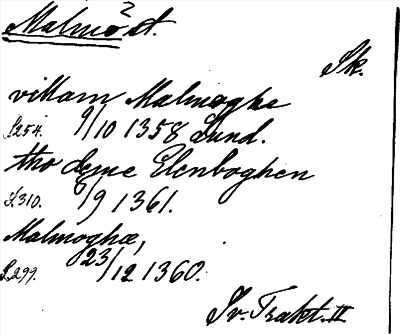 Malmö 2 st.
Sk.
villam Malmøghe
S254. 9/10 1358 Lund.
tho deme Elenboghen
S310. 6/9 1361.
Malmoghæ,
S299. 23/12 1360.
Sv. Trakt. II